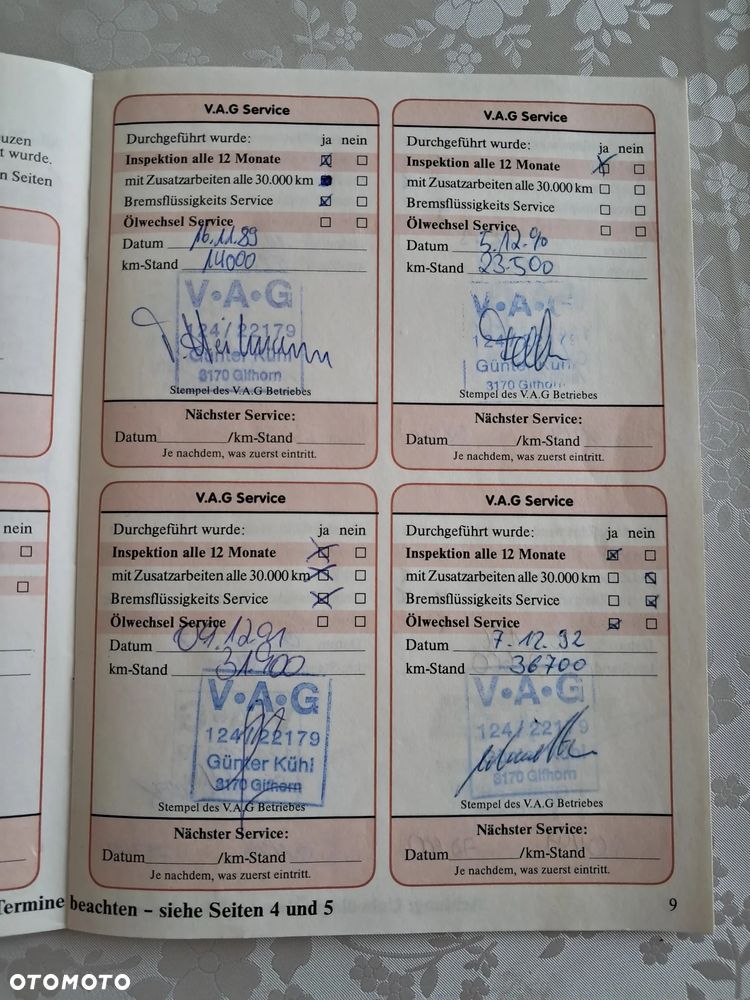 uzen
t wurde.
n Seiten
nein
V.A.G Service
Durchgeführt wurde: ja nein
Inspektion alle 12 Monate
mit Zusatzarbeiten alle 30.000 km
Bremsflüssigkeits Service
Ölwechsel Service
Datum 16.11.89
km-Stand 14000
V•A•G
124/22179
Günter Kühl
3170 Gifhorn
Stempel des V.A.G Betriebes
Nächster Service:
Datum /km-Stand
Je nachdem, was zuerst eintritt.
V.A.G Service
Durchgeführt wurde: ja nein
Inspektion alle 12 Monate
mit Zusatzarbeiten alle 30.000 km
Bremsflüssigkeits Service
Ölwechsel Service
Datum 5.12.90
km-Stand 23.500
V•A•G
Günter Kühl
3170 Gifhorn
Stempel des V.A.G Betriebes
Nächster Service:
Datum /km-Stand
Je nachdem, was zuerst eintritt.
V.A.G Service
Durchgeführt wurde: ja nein
Inspektion alle 12 Monate
mit Zusatzarbeiten alle 30.000 km
Bremsflüssigkeits Service
Ölwechsel Service
Datum 09.12.91
km-Stand 31.900
V•A•G
124/22179
Günter Kühl
3170 Gifhorn
Stempel des V.A.G Betriebes
Nächster Service:
Datum /km-Stand
Je nachdem, was zuerst eintritt.
V.A.G Service
Durchgeführt wurde: ja nein
Inspektion alle 12 Monate
mit Zusatzarbeiten alle 30.000 km
Bremsflüssigkeits Service
Ölwechsel Service
Datum 7.12.92
km-Stand 36700
V•A•G
124/22179
3170 Gifhorn
Stempel des V.A.G Betriebes
Nächster Service:
Datum /km-Stand
Je nachdem, was zuerst eintritt.
Termine beachten – siehe Seiten 4 und 5
9
OTOMOTO